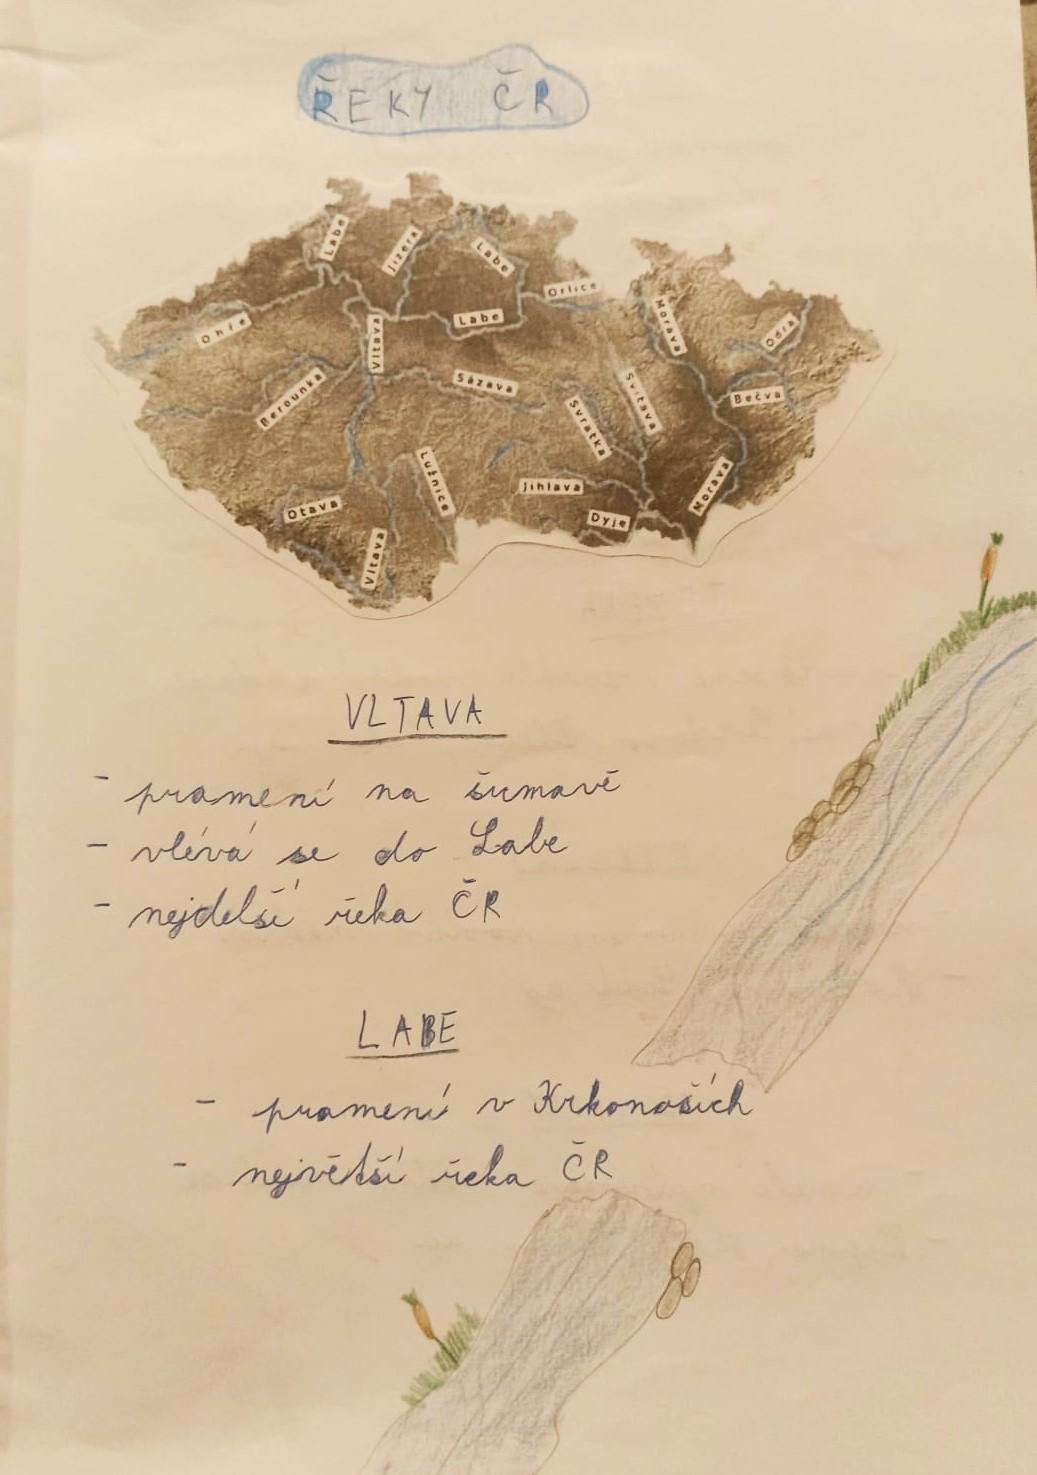 ŘEKY ČR
Labe
Jizera
Labe
Orlice
Ohře
Vltava
Labe
Morava
Odra
Berounka
Sázava
Svitava
Bečva
Svratka
Lužnice
Jihlava
Morava
Otava
Dyje
Vltava
VLTAVA
- pramení na šumavě
- vlévá se do Labe
- nejdelší řeka ČR
LABE
- pramení v Krkonoších
- největší řeka ČR